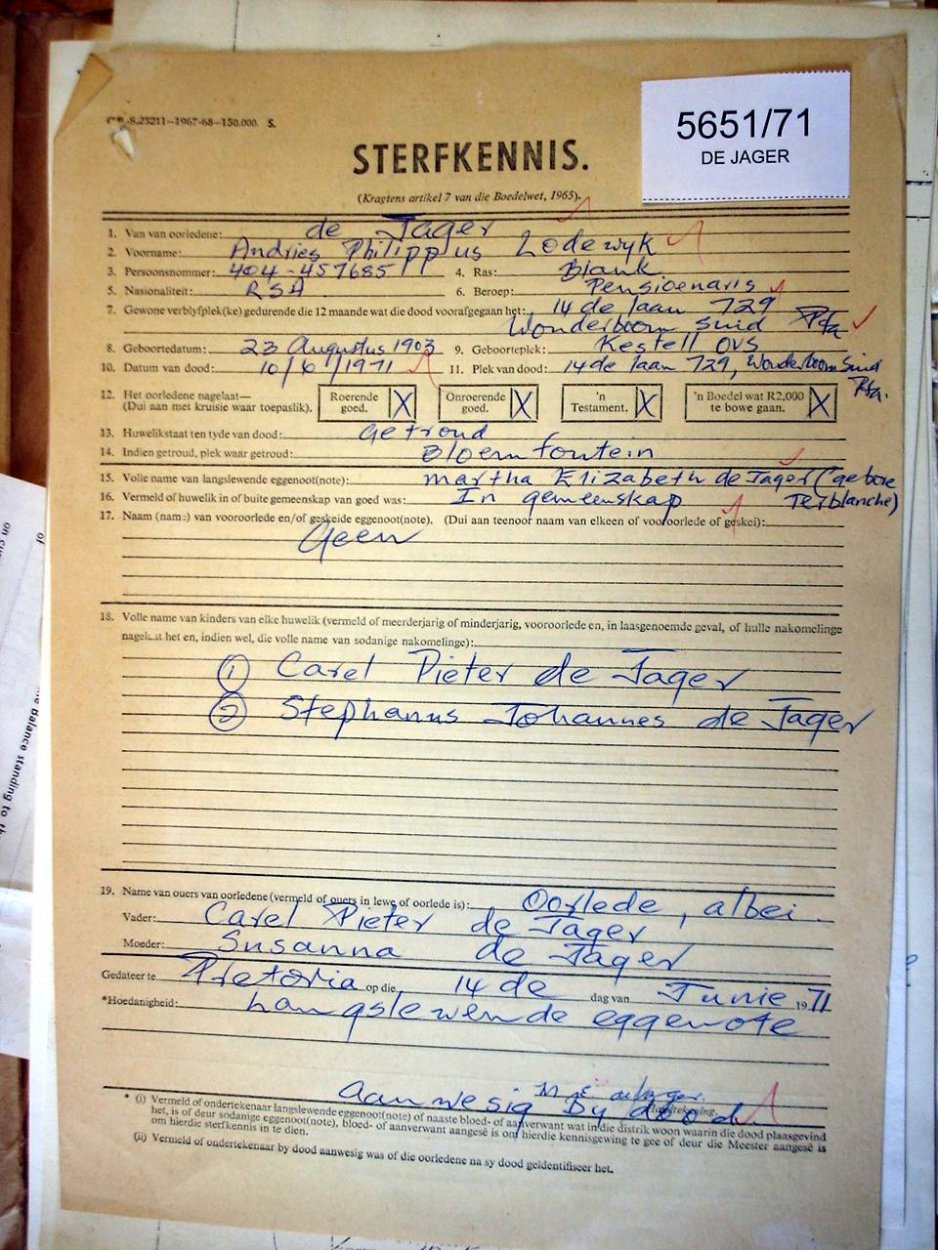 G.P.-S.23211—1967-68—150.000. S.
5651/71
DE JAGER
STERFKENNIS.
(Kragtens artikel 7 van die Boedelwet, 1965).
1. Van van oorledene: de Jager
2. Voorname: Andries Philippus Lodewyk
3. Persoonsnommer: 404-457685 4. Ras: Blank.
5. Nasionaliteit: RSA 6. Beroep: Pensioenaris
7. Gewone verblyfplek(ke) gedurende die 12 maande wat die dood voorafgegaan het: 14 de laan 729
Wonderboom Suid Pta
8. Geboortedatum: 23 Augustus 1903 9. Geboorteplek: Kestell OVS
10. Datum van dood: 10/6/1971 11. Plek van dood: 14 de laan 729, Wonderboom Suid
Pta.
12. Het oorledene nagelaat—
(Dui aan met kruisie waar toepaslik).
Roerende goed. X
Onroerende goed. X
'n Testament. X
'n Boedel wat R2,000 te bowe gaan. X
13. Huwelikstaat ten tyde van dood: Getroud
14. Indien getroud, plek waar getroud: Bloemfontein
15. Volle name van langslewende eggenoot(note): Martha Elizabeth de Jager (gebore
Terblanche)
16. Vermeld of huwelik in of buite gemeenskap van goed was: In gemeenskap
17. Naam (name) van vooroorlede en/of geskeide eggenoot(note). (Dui aan teenoor naam van elkeen of vooroorlede of geskei):
Geen
18. Volle name van kinders van elke huwelik (vermeld of meerderjarig of minderjarig, vooroorlede en, in laasgenoemde geval, of hulle nakomelinge
nagelaat het en, indien wel, die volle name van sodanige nakomelinge):
① Carel Pieter de Jager
② Stephanus Johannes de Jager
19. Name van ouers van oorledene (vermeld of ouers in lewe of oorlede is): Oorlede, albei.
Vader: Carel Pieter de Jager
Moeder: Susanna de Jager
Gedateer te Pretoria op die 14 de dag van Junie 1971
*Hoedanigheid: Langslewende eggenote
M E de Jager.
Handtekening.
Aanwesig by dood
* (i) Vermeld of ondertekenaar langslewende eggenoot(note) of naaste bloed- of aanverwant wat in die distrik woon waarin die dood plaasgevind
het, is of deur sodanige eggenoot(note), bloed- of aanverwant aangesê is om hierdie kennisgewing te gee of deur die Meester aangesê is
om hierdie sterfkennis in te dien.
(ii) Vermeld of ondertekenaar by dood aanwesig was of die oorledene na sy dood geïdentifiseer het.
of
on cu
Balance standing to th